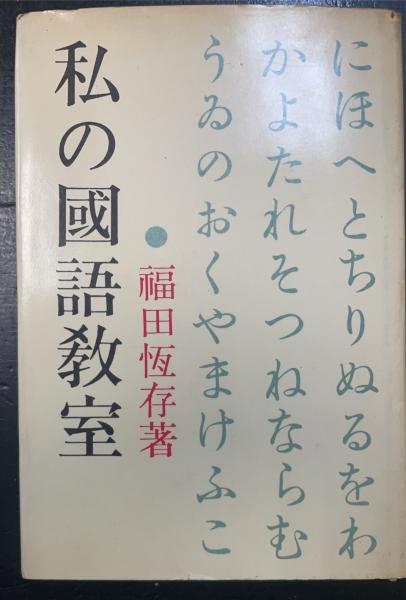 にほへとちりぬるをわ
かよたれそつねならむ
うゐのおくやまけふこ
私の國語敎室
福田恆存著